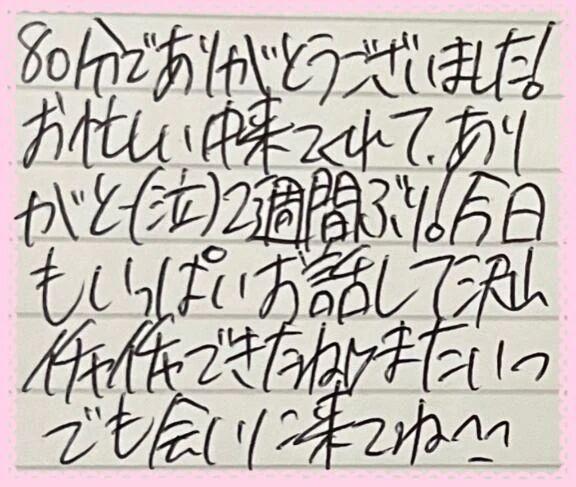 80分でありがとうございました!
お忙しい中来てくれて、あり
がとー(泣)2週間ぶり!今日
もいっぱいお話して沢山
イチャイチャできたね♪またいつ
でも会いに来てね^_^